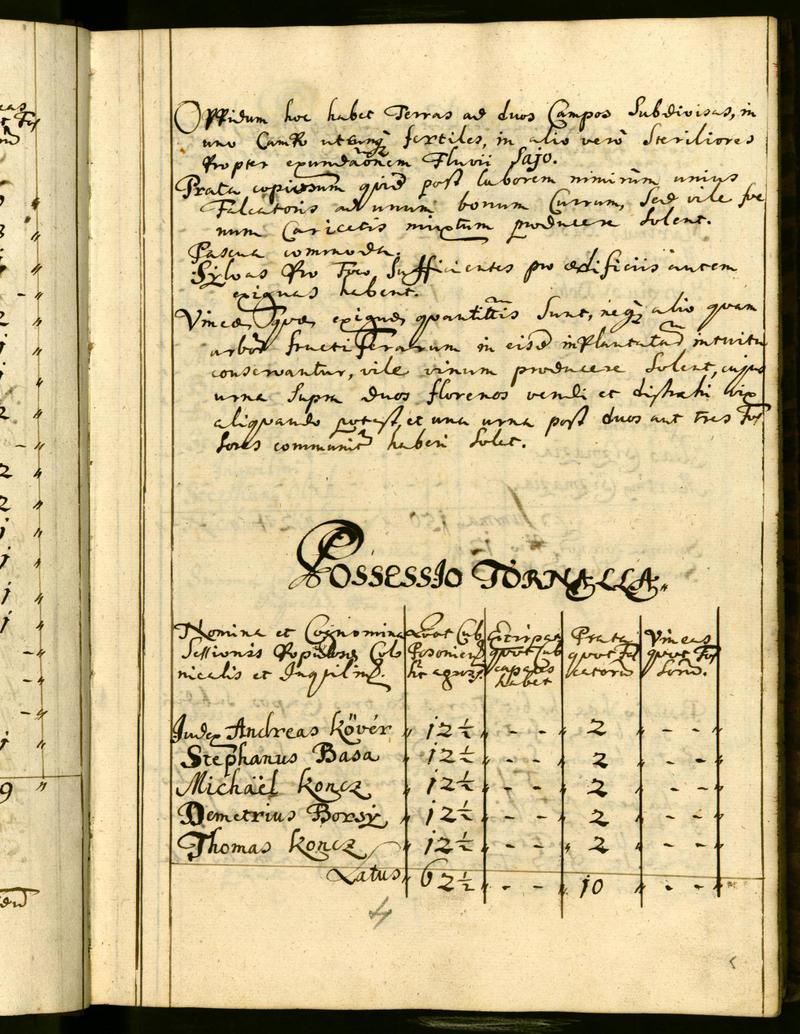 Oppidum hoc habet Terras ad duos Campos Subdivisas, in
uno Campo utcunq fertiles, in alio verò Steriliores
Propter exundaõnem Fluvii Sajo.
Prata copiosum quid post laborem nimirum unius
Falcatoris ad unum bonum Currum, Sed vile foe
num Caricetis mixtum producere Solent.
Pascua commoda.
Sylvas Pro Foco Sufficientes pro ædificiis autem
exiguas habent.
Vineæ, quæ exiguæ quantitatis Sunt, neq alio quam
arborũ fructiferarum in eisd inPlantatarũ intuitu
conservantur, vile vinum producere Solent, cujus
urna Supra duos florenos vendi et distrahi vix
aliquando potest, et una urna post duos aut tres Fos
sores communit haberi Solet.
POSSESSIO TORNALLA.
Nomina et Cognomina Quot Cub Extirpat Prata Vineas
Sessionis Populosq Colo Posonien quot Cub quot Fal quot Fos
nicalis et Inquilinq. lis agros. capaces habet catorũ sorũ.
Judex Andreas Kövér " 12½ " - - " 2 " - - "
Stephanus Basa " 12½ " - - " 2 " - - "
Michaël Koncz " 12½ " - - " 2 " - - "
Demetrius Borsÿ " 12½ " - - " 2 " - - "
Thomas Koncz " 12½ " - - " 2 " - - "
Latus " 62½ " - - " 10 " - - "